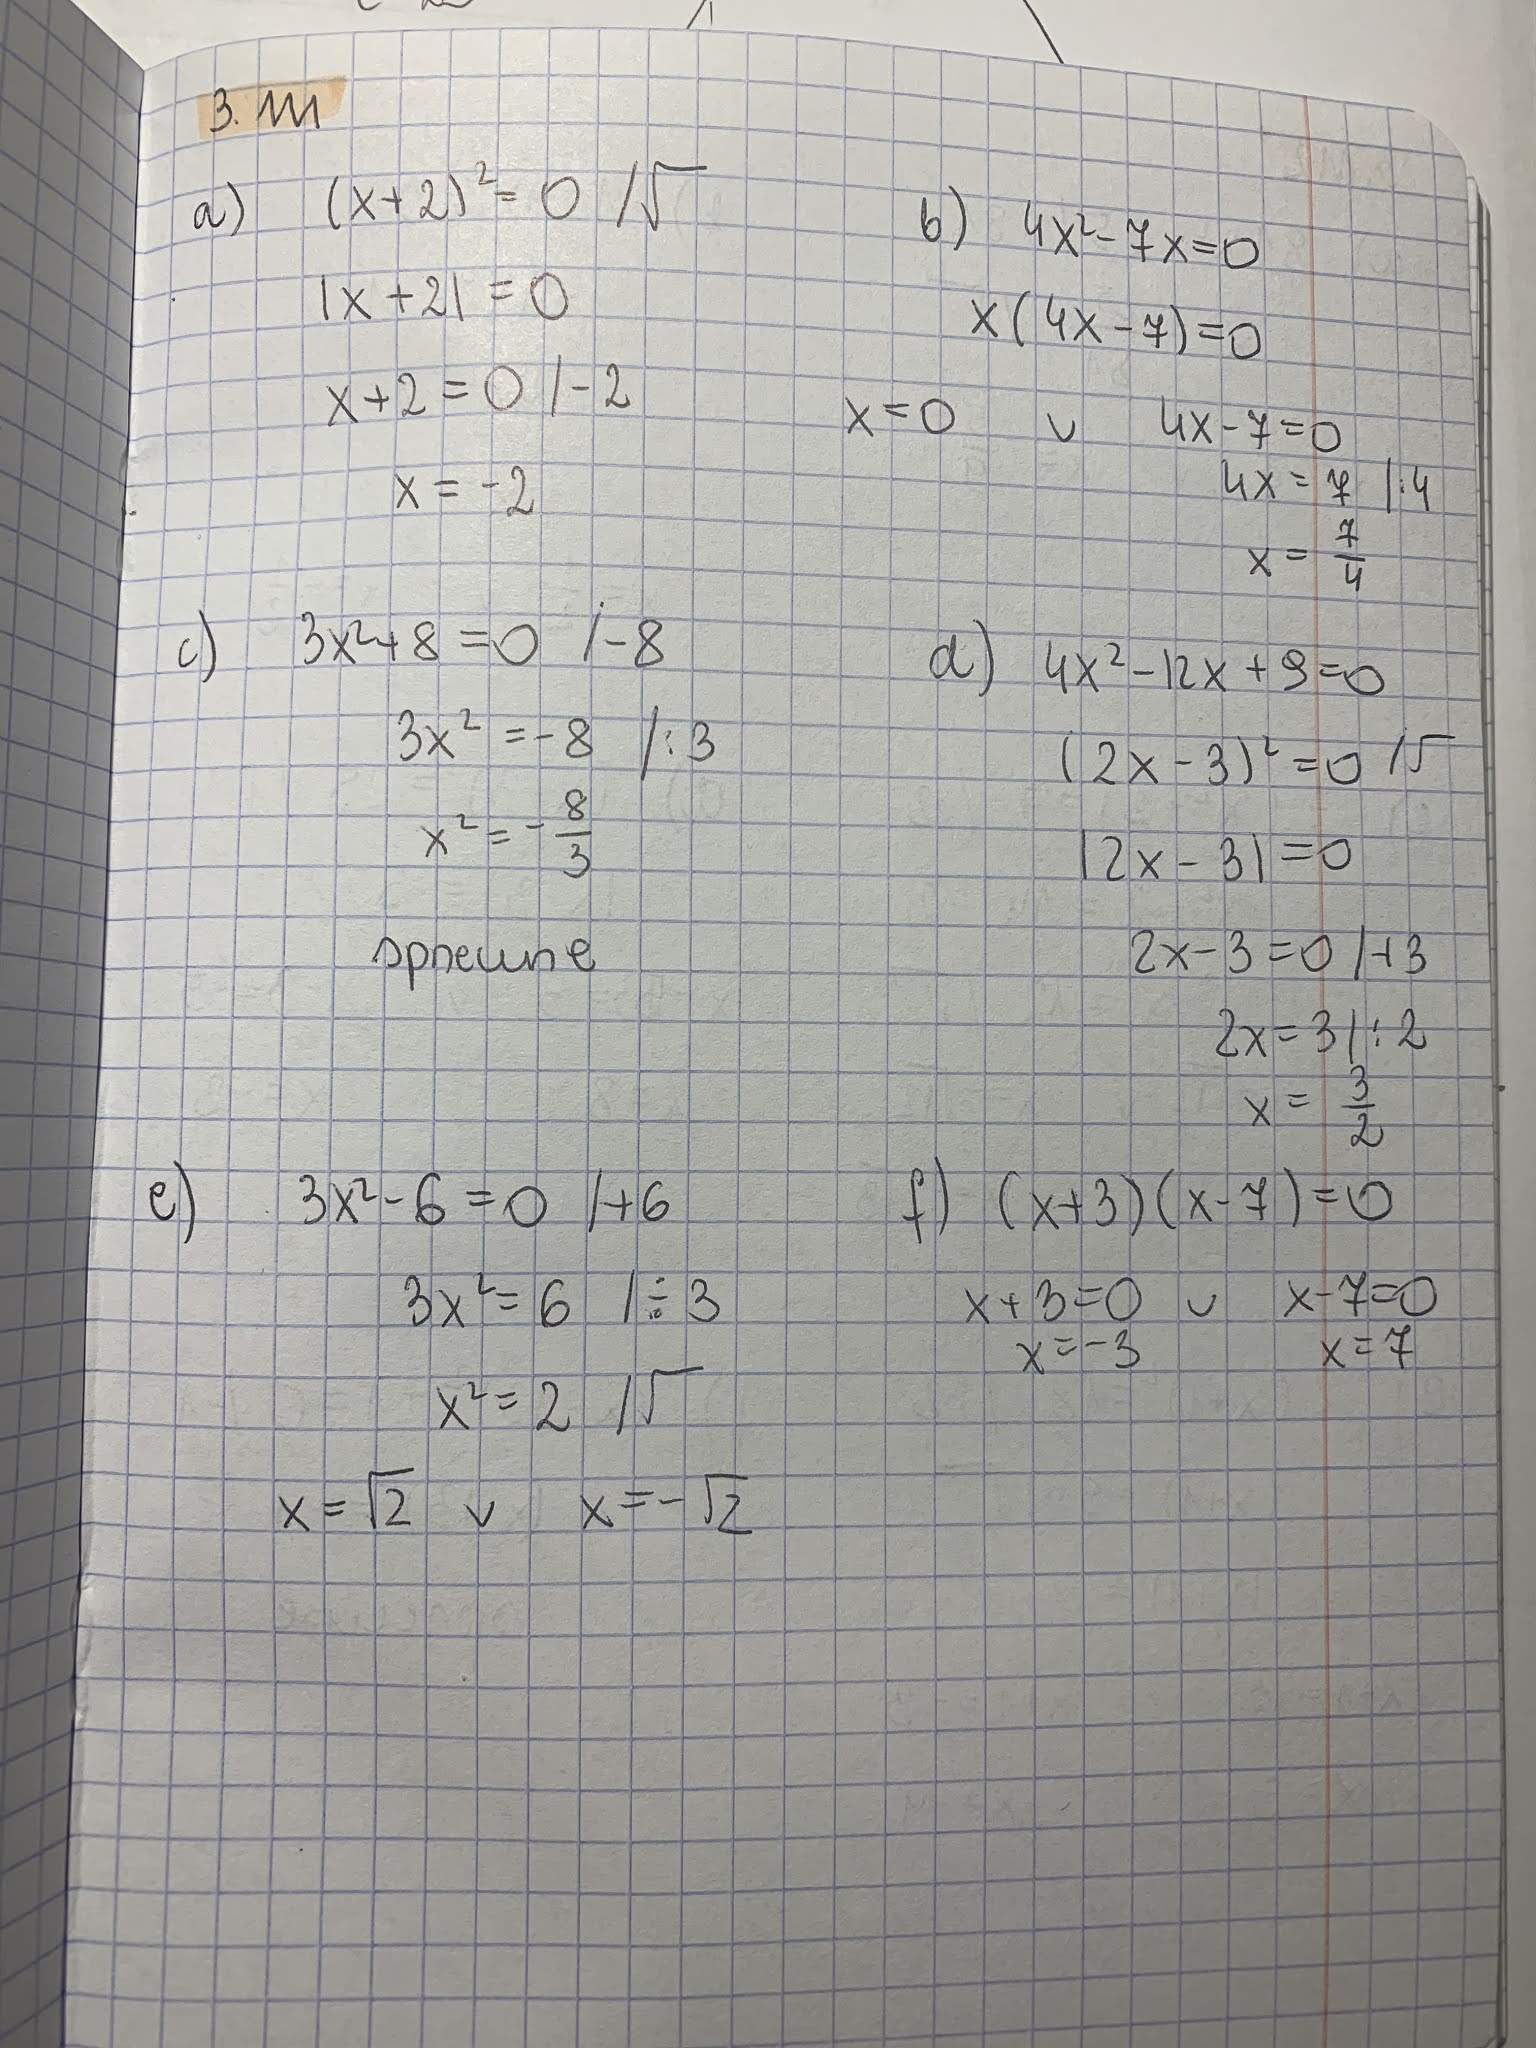 3. 111
a) (x+2)² = 0 /√
|x+2| = 0
x+2 = 0 /-2
x = -2
b) 4x²-7x=0
x(4x-7)=0
x=0 v 4x-7=0
4x=7 |:4
x = 7/4
c) 3x²+8=0 /-8
3x² = -8 /:3
x² = -8/3
sprzeczne
d) 4x²-12x+9=0
(2x-3)²=0 /√
|2x-3|=0
2x-3=0 /+3
2x=3 |:2
x = 3/2
e) 3x²-6=0 /+6
3x²=6 /÷3
x²=2 /√
x=√2 v x=-√2
f) (x+3)(x-7)=0
x+3=0 v x-7=0
x=-3 x=7